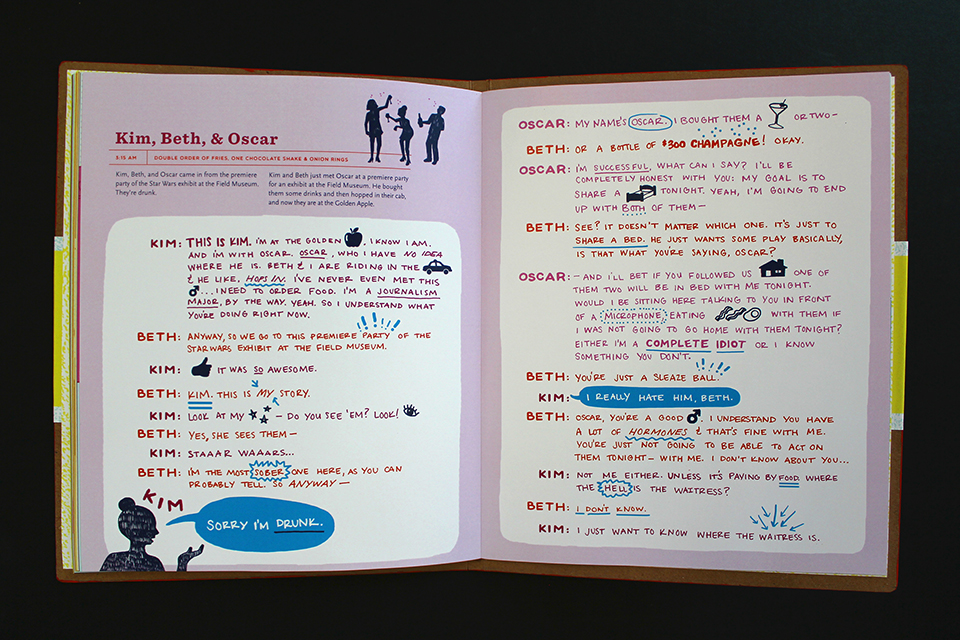 Kim, Beth, & Oscar
3:15 AM | DOUBLE ORDER OF FRIES, ONE CHOCOLATE SHAKE & ONION RINGS
Kim, Beth, and Oscar came in from the premiere
party of the Star Wars exhibit at the Field Museum.
They're drunk.
Kim and Beth just met Oscar at a premiere party
for an exhibit at the Field Museum. He bought
them some drinks and then hopped in their cab,
and now they are at the Golden Apple.
KIM: THIS IS KIM. I'M AT THE GOLDEN . I KNOW I AM.
AND I'M WITH OSCAR. OSCAR, WHO I HAVE NO IDEA
WHERE HE IS. BETH & I ARE RIDING IN THE
& HE LIKE, HOPS IN. I'VE NEVER EVEN MET THIS
...I NEED TO ORDER FOOD. I'M A JOURNALISM
MAJOR, BY THE WAY. YEAH. SO I UNDERSTAND WHAT
YOU'RE DOING RIGHT NOW.
BETH: ANYWAY, SO WE GO TO THIS PREMIERE PARTY OF THE
STARWARS EXHIBIT AT THE FIELD MUSEUM.
KIM: IT WAS SO AWESOME.
BETH: KIM. THIS IS MY STORY.
KIM: LOOK AT MY – DO YOU SEE 'EM? LOOK!
BETH: YES, SHE SEES THEM –
KIM: STAAAR WAAARS...
BETH: I'M THE MOST SOBER ONE HERE, AS YOU CAN
PROBABLY TELL. SO ANYWAY –
KIM
SORRY I'M DRUNK.
OSCAR: MY NAME'S OSCAR. I BOUGHT THEM A OR TWO –
BETH: OR A BOTTLE OF $300 CHAMPAGNE! OKAY.
OSCAR: I'M SUCCESSFUL, WHAT CAN I SAY? I'LL BE
COMPLETELY HONEST WITH YOU: MY GOAL IS TO
SHARE A TONIGHT. YEAH, I'M GOING TO END
UP WITH BOTH OF THEM –
BETH: SEE? IT DOESN'T MATTER WHICH ONE. IT'S JUST TO
SHARE A BED. HE JUST WANTS SOME PLAY BASICALLY,
IS THAT WHAT YOU'RE SAYING, OSCAR?
OSCAR: – AND I'LL BET IF YOU FOLLOWED US ONE OF
THEM TWO WILL BE IN BED WITH ME TONIGHT.
WOULD I BE SITTING HERE TALKING TO YOU IN FRONT
OF A MICROPHONE EATING WITH THEM IF
I WAS NOT GOING TO GO HOME WITH THEM TONIGHT?
EITHER I'M A COMPLETE IDIOT OR I KNOW
SOMETHING YOU DON'T.
BETH: YOU'RE JUST A SLEAZE BALL.
KIM: I REALLY HATE HIM, BETH.
BETH: OSCAR, YOU'RE A GOOD . I UNDERSTAND YOU HAVE
A LOT OF HORMONES & THAT'S FINE WITH ME.
YOU'RE JUST NOT GOING TO BE ABLE TO ACT ON
THEM TONIGHT – WITH ME. I DON'T KNOW ABOUT YOU...
KIM: NOT ME EITHER. UNLESS IT'S PAYING BY FOOD. WHERE
THE HELL IS THE WAITRESS?
BETH: I DON'T KNOW.
KIM: I JUST WANT TO KNOW WHERE THE WAITRESS IS.